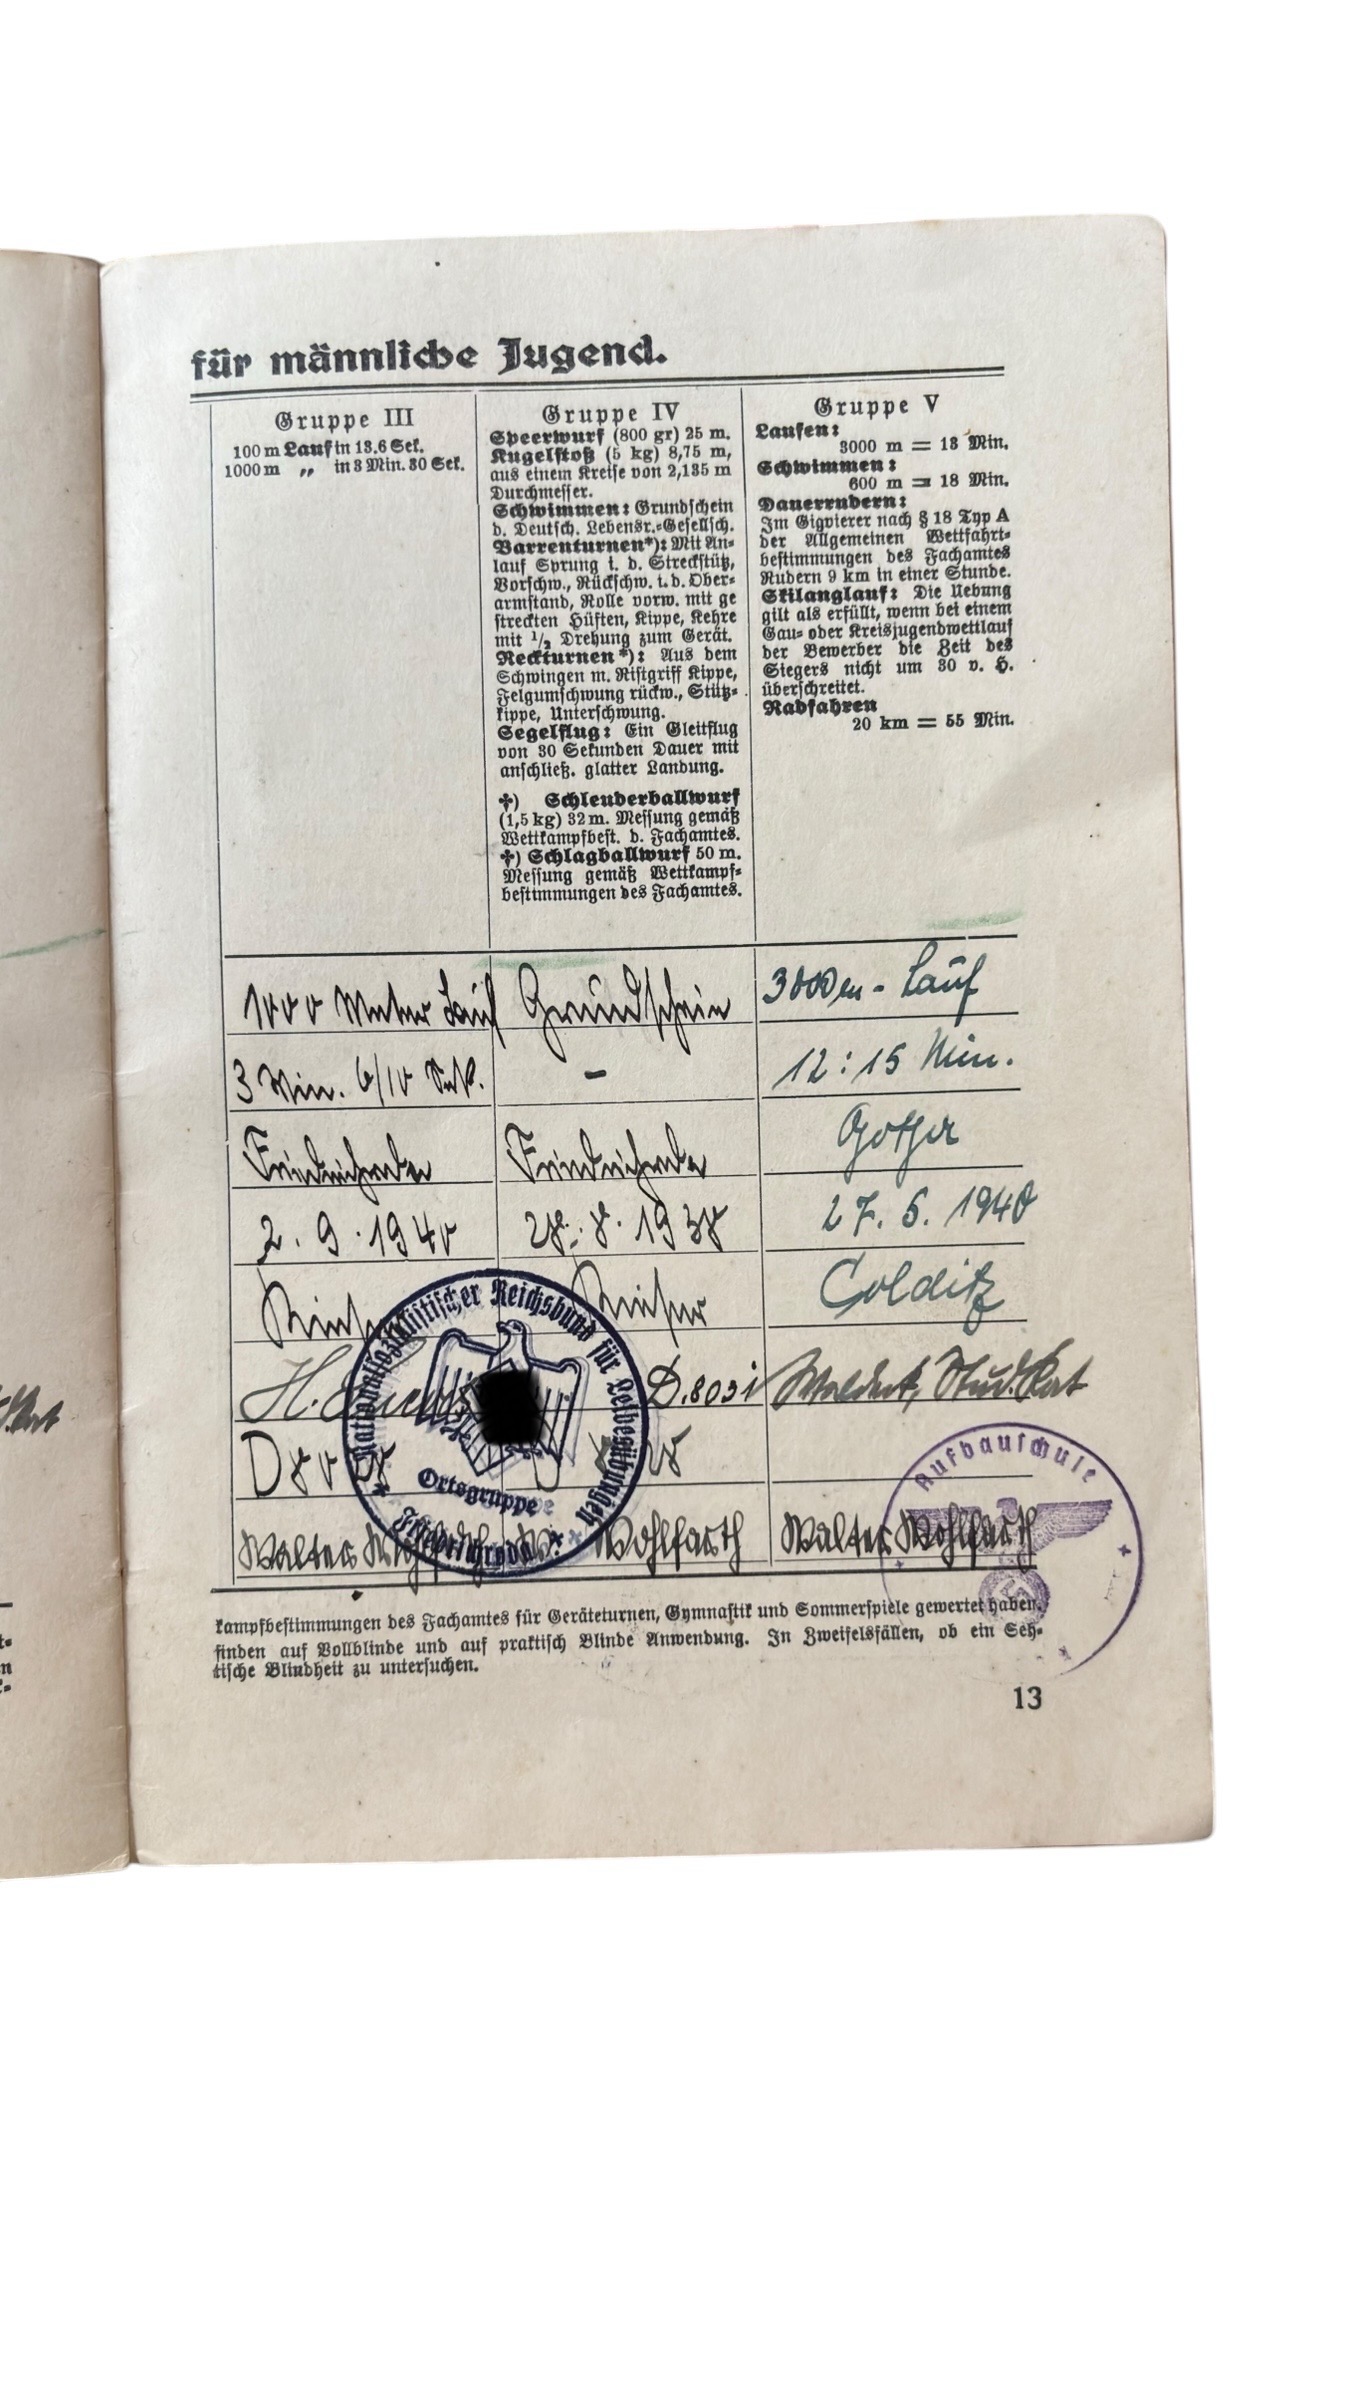 für männliche Jugend.
Gruppe III
100 m Lauf in 13.6 Sek.
1000 m „ in 3 Min. 30 Sek.
Gruppe IV
Speerwurf (800 gr) 25 m.
Kugelstoß (5 kg) 8,75 m,
aus einem Kreise von 2,135 m
Durchmesser.
Schwimmen: Grundschein
d. Deutsch. Lebensr.-Gesellsch.
Barrenturnen*): Mit An-
lauf Sprung i. d. Streckstütz,
Vorschw., Rückschw. i. d. Ober-
armstand, Rolle vorw. mit ge
streckten Hüften, Kippe, Kehre
mit 1/2 Drehung zum Gerät.
Reckturnen*): Aus dem
Schwingen m. Ristgriff Kippe,
Felgumschwung rückw., Stütz-
kippe, Unterschwung.
Segelflug: Ein Gleitflug
von 30 Sekunden Dauer mit
anschließ. glatter Landung.
✢) Schleuderballwurf
(1,5 kg) 32 m. Messung gemäß
Wettkampfbest. d. Fachamtes.
✢) Schlagballwurf 50 m.
Messung gemäß Wettkampf-
bestimmungen des Fachamtes.
Gruppe V
Laufen:
3000 m = 13 Min.
Schwimmen:
600 m = 18 Min.
Dauerrudern:
Im Gigvierer nach § 18 Typ A
der Allgemeinen Wettfahrt-
bestimmungen des Fachamtes
Rudern 9 km in einer Stunde.
Skilanglauf: Die Uebung
gilt als erfüllt, wenn bei einem
Gau- oder Kreisjugendwettlauf
der Bewerber die Zeit des
Siegers nicht um 30 v. H.
überschreitet.
Radfahren
20 km = 55 Min.
1000 Meter Lauf Grundschein 3000 m - Lauf
3 Min. 6/10 Sek. - 12:15 Min.
Friedrichroda Friedrichroda Gotha
2. 9. 1940 28. 8. 1938 27. 5. 1940
Colditz
H. D. 8031 Stud. Rat
Walter Wohlfarth Walter Wohlfarth
Nationalsozialistischer Reichsbund für Leibesübungen
Ortsgruppe
Friedrichroda
Aufbauschule
kampfbestimmungen des Fachamtes für Geräteturnen, Gymnastik und Sommerspiele gewertet haben.
finden auf Vollblinde und auf praktisch Blinde Anwendung. In Zweifelsfällen, ob ein Seh-
tische Blindheit zu untersuchen.
13